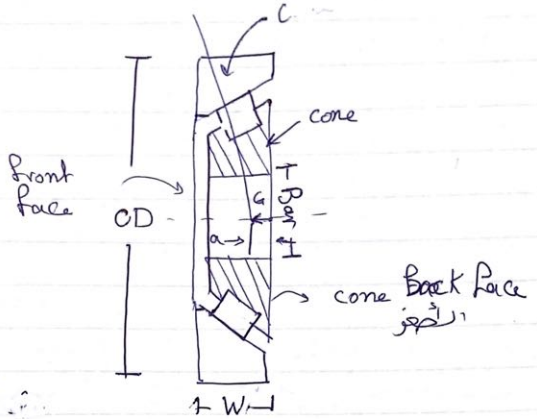 C
cone
front
face
Bar
G
OD
a
cone Back face
W